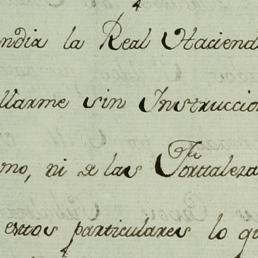 ndia la Real Haciend
llarme sin Instruccio
mo, ni a las Fortaleza
estos particulares lo qu